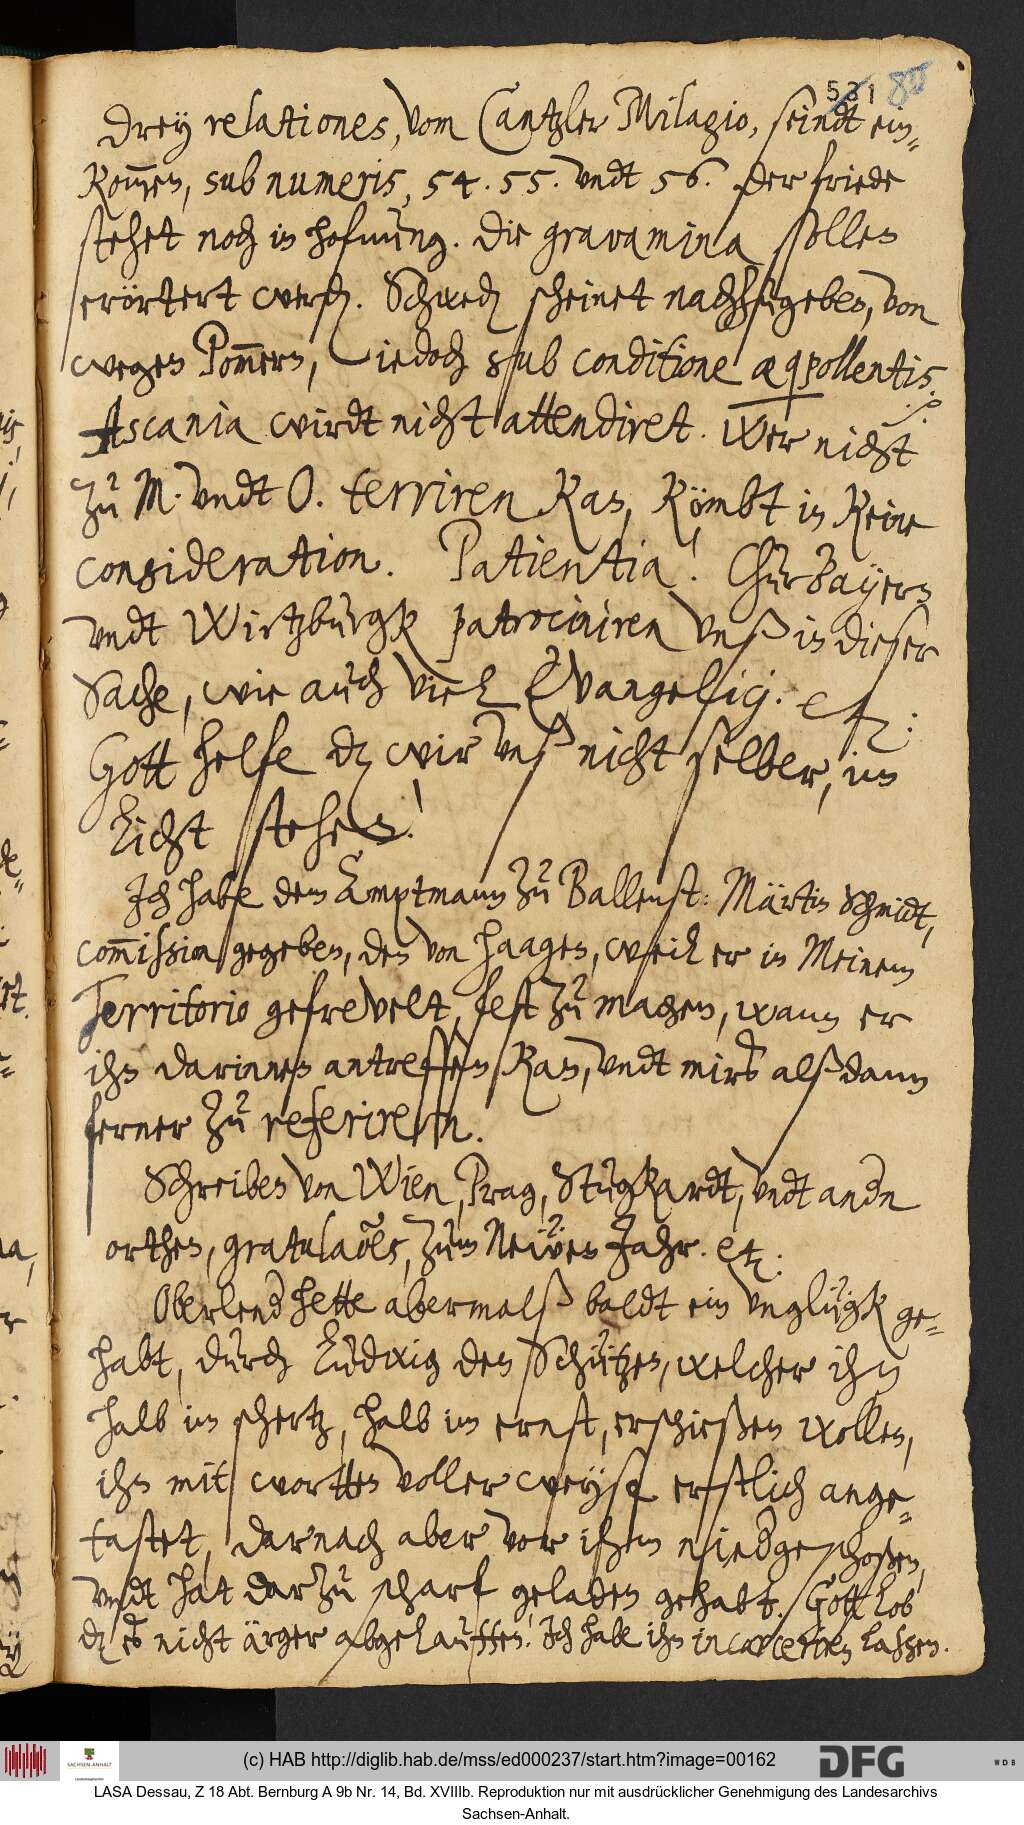 531 80
Drey relationes, vom Cantzler Milagio, seindt ein„
kom̅en, sub numeris, 54. 55. vndt 56. Der friede
stehet noch in hofnung. Die gravamina sollen
erörtert werd. Schwed scheinet nachzugeben, von
wegen Pom̅ern, iedoch sub conditione æqpollentis.
Ascania wirdt nicht attendiret. Wer nicht
zu M. vndt O. terriren kan, kömbt in keine
consideration. Patientia! ChurBayern
vndt Wirtzburgk patrociniren vnß in dieser
Sache, wie auch viel Evangelicj. etc:
Gott helfe dz wir vnß nicht selber, im
Licht stehen!
Ich habe dem Amptmann zu Ballenst: Märtin Schmidt,
com̅ission gegeben, den von Haagen, weil er in Meinem
Territorio gefrevelt, fest zu machen, wann er
ihn darinnen antreffen kan, vndt mirs alßdann
ferner zu referiren.
Schreiben von Wien, Prag, Stugkardt, vndt andn
orthen, gratulaões, zum Neẅen Jahr. etc:
Oberlend hette abermalß baldt ein vnglügk ge„
habt, durch Ludwig den Schützen, welcher ihn
halb im schertz, halb im ernst, erschießen wollen,
ihn mit worten voller weyse erstlich ange„
tastet, darnach aber vor ihm niedgeschoßen,
vndt hat darzu scharf geladen gehabt. Gott lob
dz es nicht ärger abgelauffen! Ich habe ihn incarceriren laßen.
(c) HAB http://diglib.hab.de/mss/ed000237/start.htm?image=00162
SACHSEN-ANHALT
DFG
WDB
LASA Dessau, Z 18 Abt. Bernburg A 9b Nr. 14, Bd. XVIIIb. Reproduktion nur mit ausdrücklicher Genehmigung des Landesarchivs
Sachsen-Anhalt.